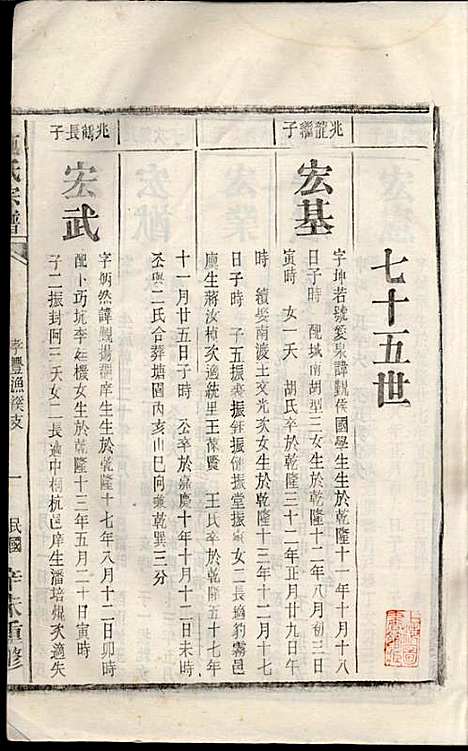 七十五世
兆龍繼子
宏基
字坤若號篆崇諱觀侯國學生生於乾隆十一年十月十八
日子時 配城南胡型三女生於乾隆十二年八月初三日
寅時 女一夭 胡氏卒於乾隆三十二年正月廿九日午
時 續娶南渡王文光次女生於乾隆十三年十二月十七
日子時 子五振 振鈺振健振堂振 女二長適豹霧邑
庠生蔣汝樟次適統里王葆賢 王氏卒於乾隆五十七年
十一月廿五日子時 公卒於嘉慶十年十月十二日未時
與二氏合葬塘園內亥山巳向兼乾巽三分
兆鶴長子
宏武
字炳然諱觀揚邑庠生生於乾隆十七年八月十二日卯時
配卜巧坑李廷機女生於乾隆十三年五月二十日寅時
子二振封阿三夭女二長適中桐杭邑庠生潘培焜次適失
氏宗譜
孝豐漁溪支
一
民國
辛未重修